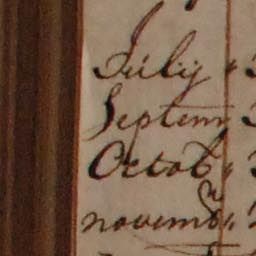 July
Septem
Octob
novemb